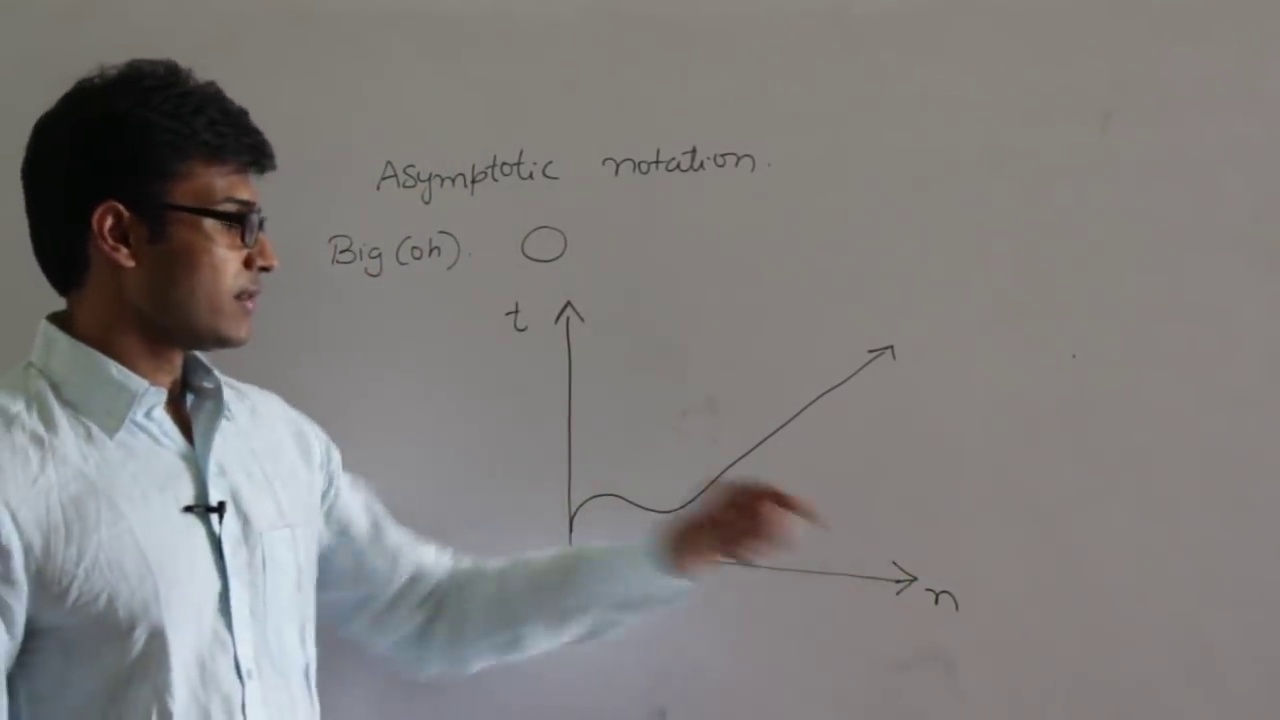 Asymptotic notation.
Big (oh). O
t
n